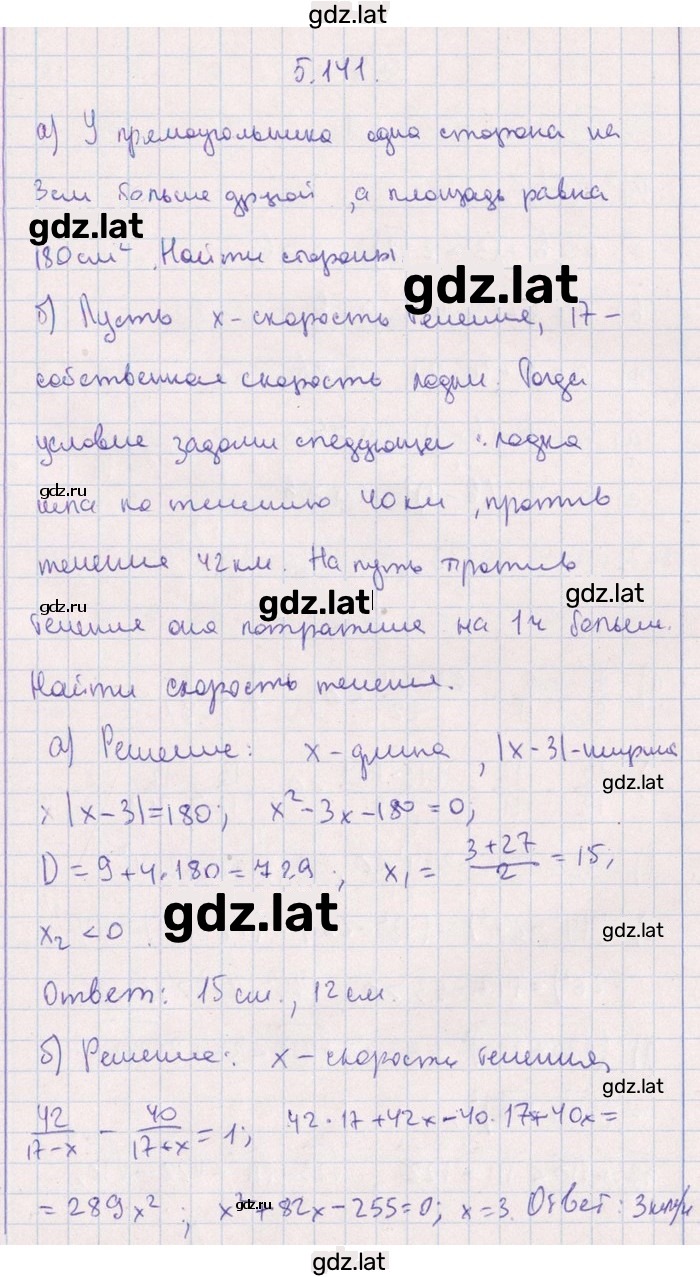 gdz.lat
5.141.
а) У прямоугольника одна сторона на
3см больше другой, а площадь равна
gdz.lat
180 см². Найти стороны.
gdz.lat
б) Пусть x - скорость течения, 17 -
собственная скорость лодки. Тогда
условие задачи следующее: лодка
gdz.ru
шла по течению 40 км, против
течения 42 км. На путь против
gdz.ru
gdz.lat
gdz.lat
течения она потратила на 1ч больше.
Найти скорость течения.
а) Решение: x - длина, |x-3| - ширина
gdz.lat
x|x-3|=180; x²-3x-180=0;
D=9+4·180=729; x₁ = (3+27)/2 = 15;
gdz.lat
x₂<0.
gdz.lat
Ответ: 15 см., 12 см.
б) Решение: x - скорость течения,
gdz.lat
42/(17-x) - 40/(17+x) = 1; 42·17+42x-40·17+40x=
=289x²; x²+82x-255=0; x=3. Ответ: 3 км/ч
gdz.ru
gdz.lat